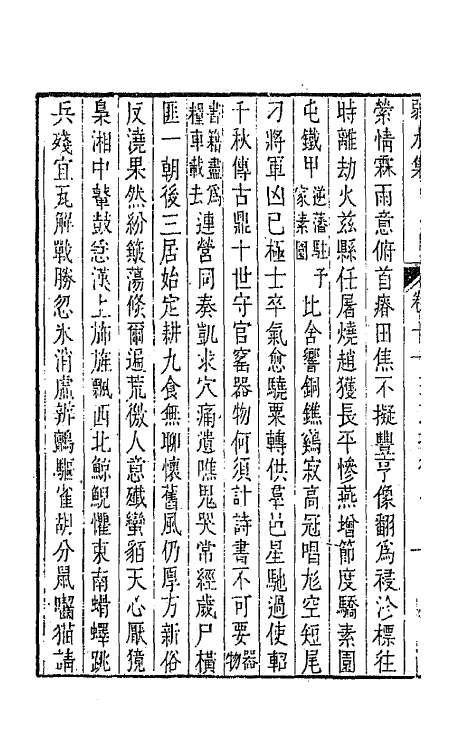 縈情霖雨意俯首瘠田焦不擬豐亨像翻為祲沴標往
時離劫火茲縣任屠燒趙獲長平慘燕增節度驕素園
屯鐵甲逆藩駐予家素園比舍響銅鐎鷄寂高冠唱尨空短尾
刁將軍凶已極士卒氣愈驍粟轉供羣邑星馳過使軺
千秋傳古鼎十世守官窰器物何須計詩書不可要器物
書籍盡為糧車載去連營同奏凱求穴痛遺噍鬼哭常經歲尸橫
匪一朝後三居始定耕九食無聊懷舊風仍厚方新俗
反澆果然紛鏺蕩倏爾遍荒徼人意殱蠻貊天心厭獍
梟湘中鼙鼓急漢上旆旌飄西北鯨鯢懼東南蝟蠌跳
兵殘宜瓦解戰勝忽氷消盧辨鸇驅雀胡分鼠囓猫請